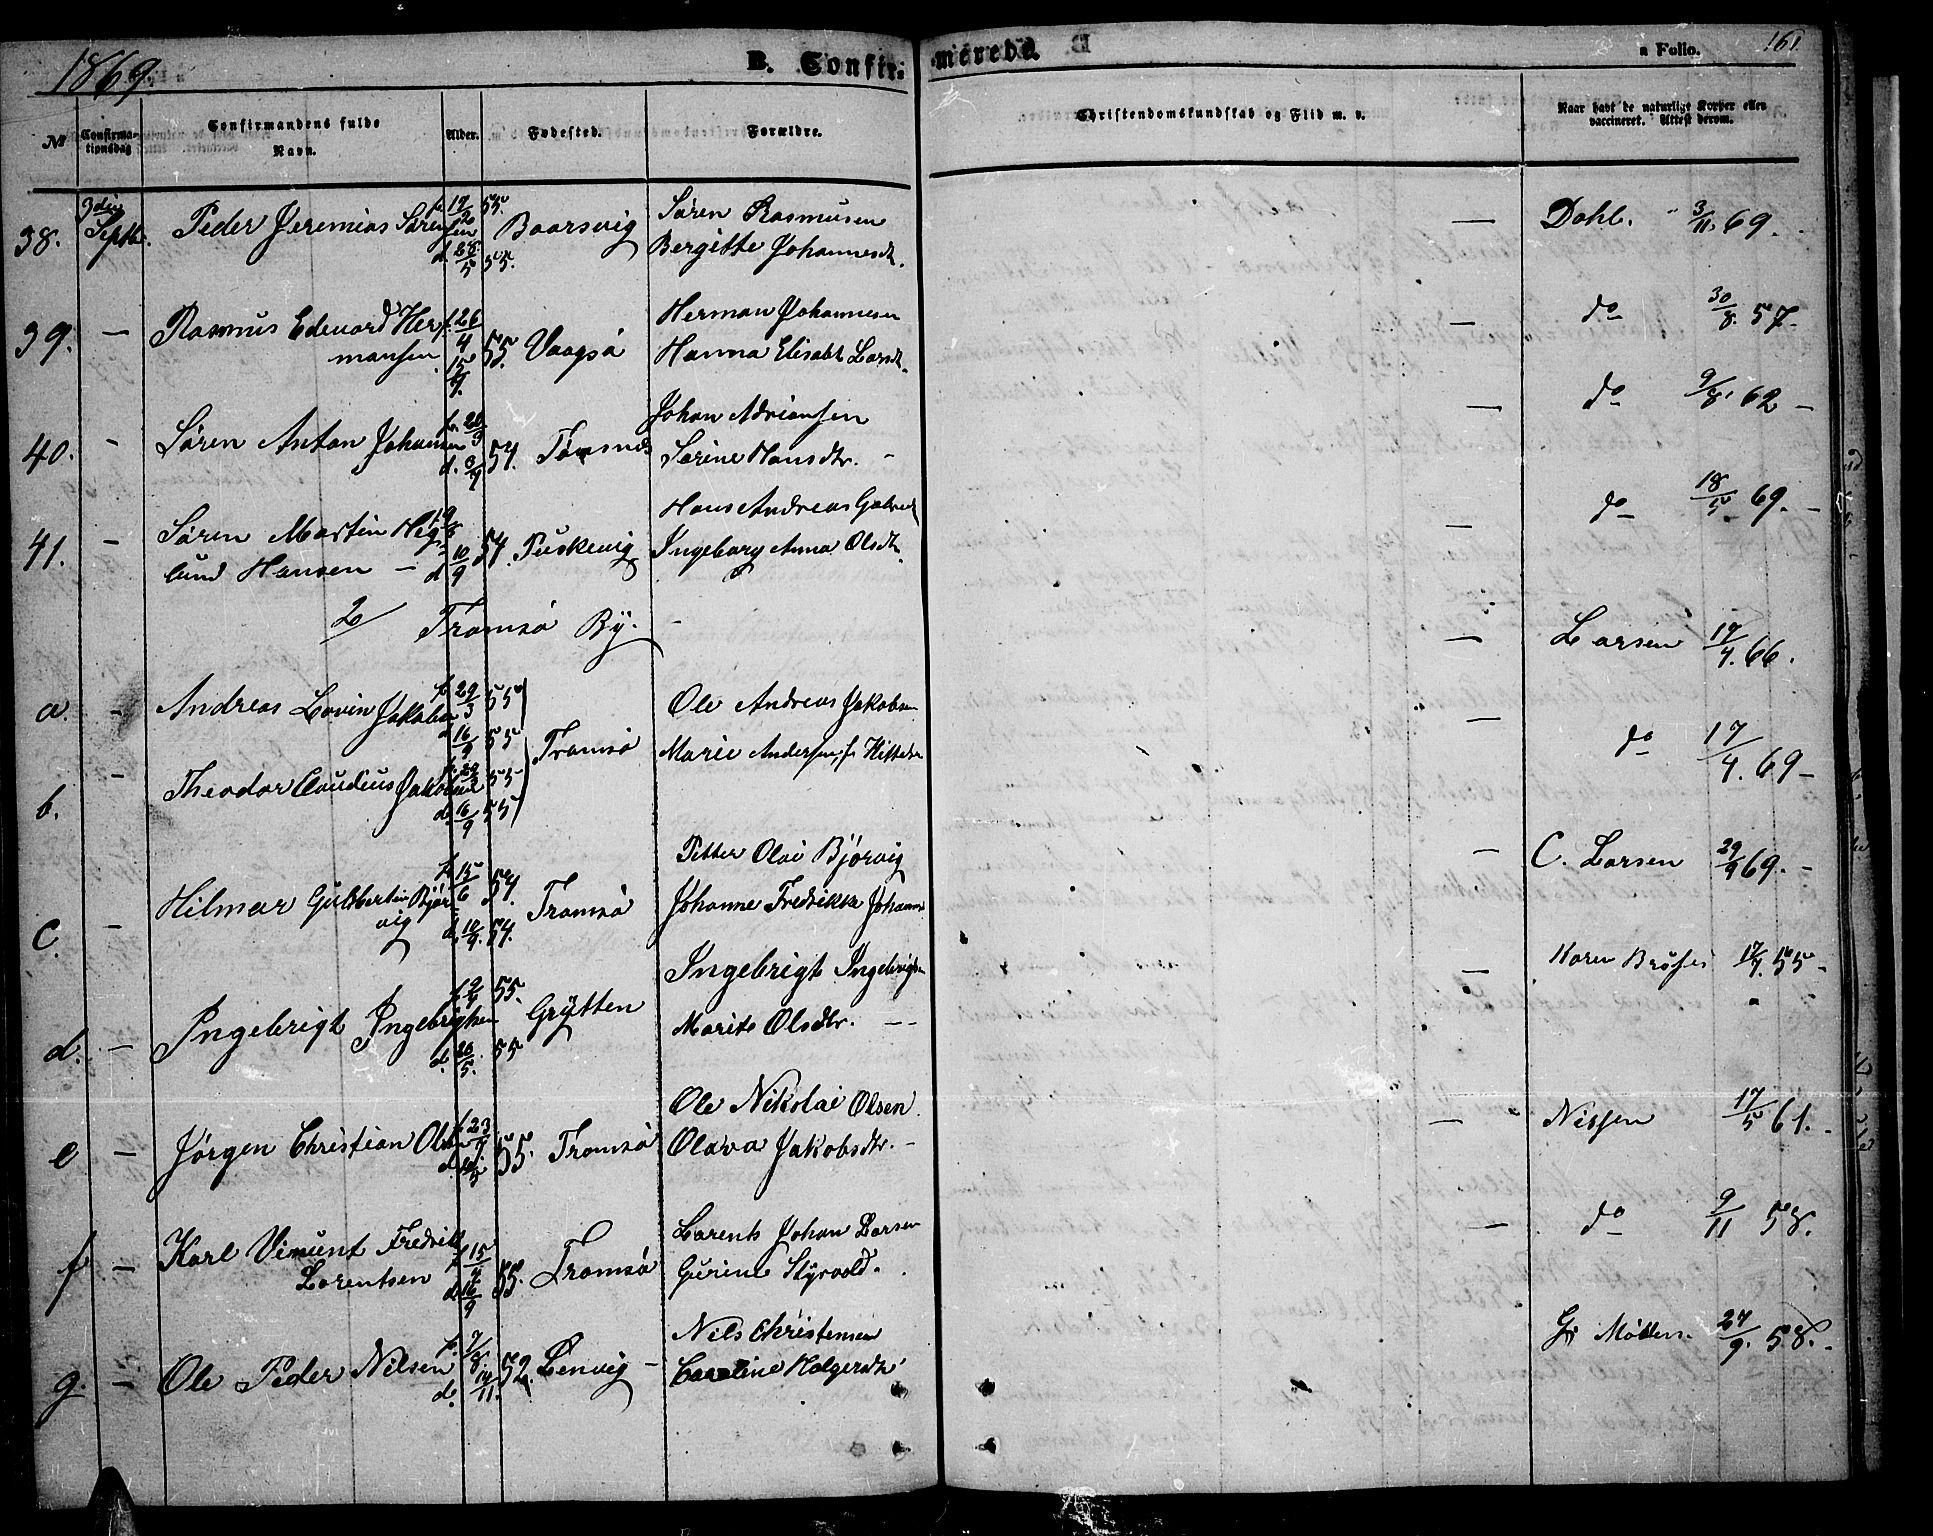 1869.
B. Confir:
merede.
a Folio. 161
№ Confirma-tionsdag Confirmandens fulde Navn. Alder. Fødested. Forældre. Christendomskundskab og Flid m. v. Naar havt de naturlige Kopper eller vaccineret. Attest derom.
38. 3die Septb. Peder Jeremias Sørensen f. 19/2 55. d. 28/5 55. Baarsvig Søren Rasmusen
Bergitte Johannesdt. — Dahl. 3/11. 69.
39. — Rasmus Edevard Her
mansen f. 26/4 15/9. 55. Vaagsø Herman Johannesen
Hanna Elisabt Larsdt. — do 30/8. 57.
40. - Søren Anton Johansen f. 20/3 d. 3/9 54. Tønsnes Johan Adriansen
Sørine Hansdtr. — do 9/8. 62 -
41. - Søren Martin Heg
lund Hansen — d 10/9 54. Puskevig Hans Andreas Gabriel
Ingeborg Anna Olsdt. — do 18/5 69. -
2/ Tromsø By. -
a. - Andreas Lovin Jakobsen f. 29/3 55 16/9 55 Tromsø Ole Andreas Jakobsen
Marie Andersen, f. — Larsen 17/4. 66.
b. - Theodor Claudius Jakobsen f. 29/3 55 d. 16/9 55 — do 17/4. 69 -
C. - Hilmar Guldbertin Bjør
vig f. 15/6 54. d. 10/9. 54. Tromsø Petter Olai Bjørvig
Johanne Fredrikke Johanns — C. Larsen 29/9 69. -
d. - Ingebrigt Ingebrigtsen 55. d. 20/5. 55 Grytten Ingebrigt Ingebrigtsen
Marite Olsdtr. — — 55 -
e - Jørgen Christian Olsen f. 23 55. Tromsø Ole Nikolai Olsen.
Olava Jakobsdtr. - — Nissen 17/5 61. -
f - Karl Vimunt Fredrik
Lorentsen f. 15/4 d. 16/9 55. Tromsø Lorents Johan Larsen
Gurine Styrvold. — do 9/11 58.
g. - Ole Peder Nilsen f. 7/8. d. 14/11. 52. Lenvig — Nils Christensen
Caroline Holgersdtr G. 27/9. 58. -